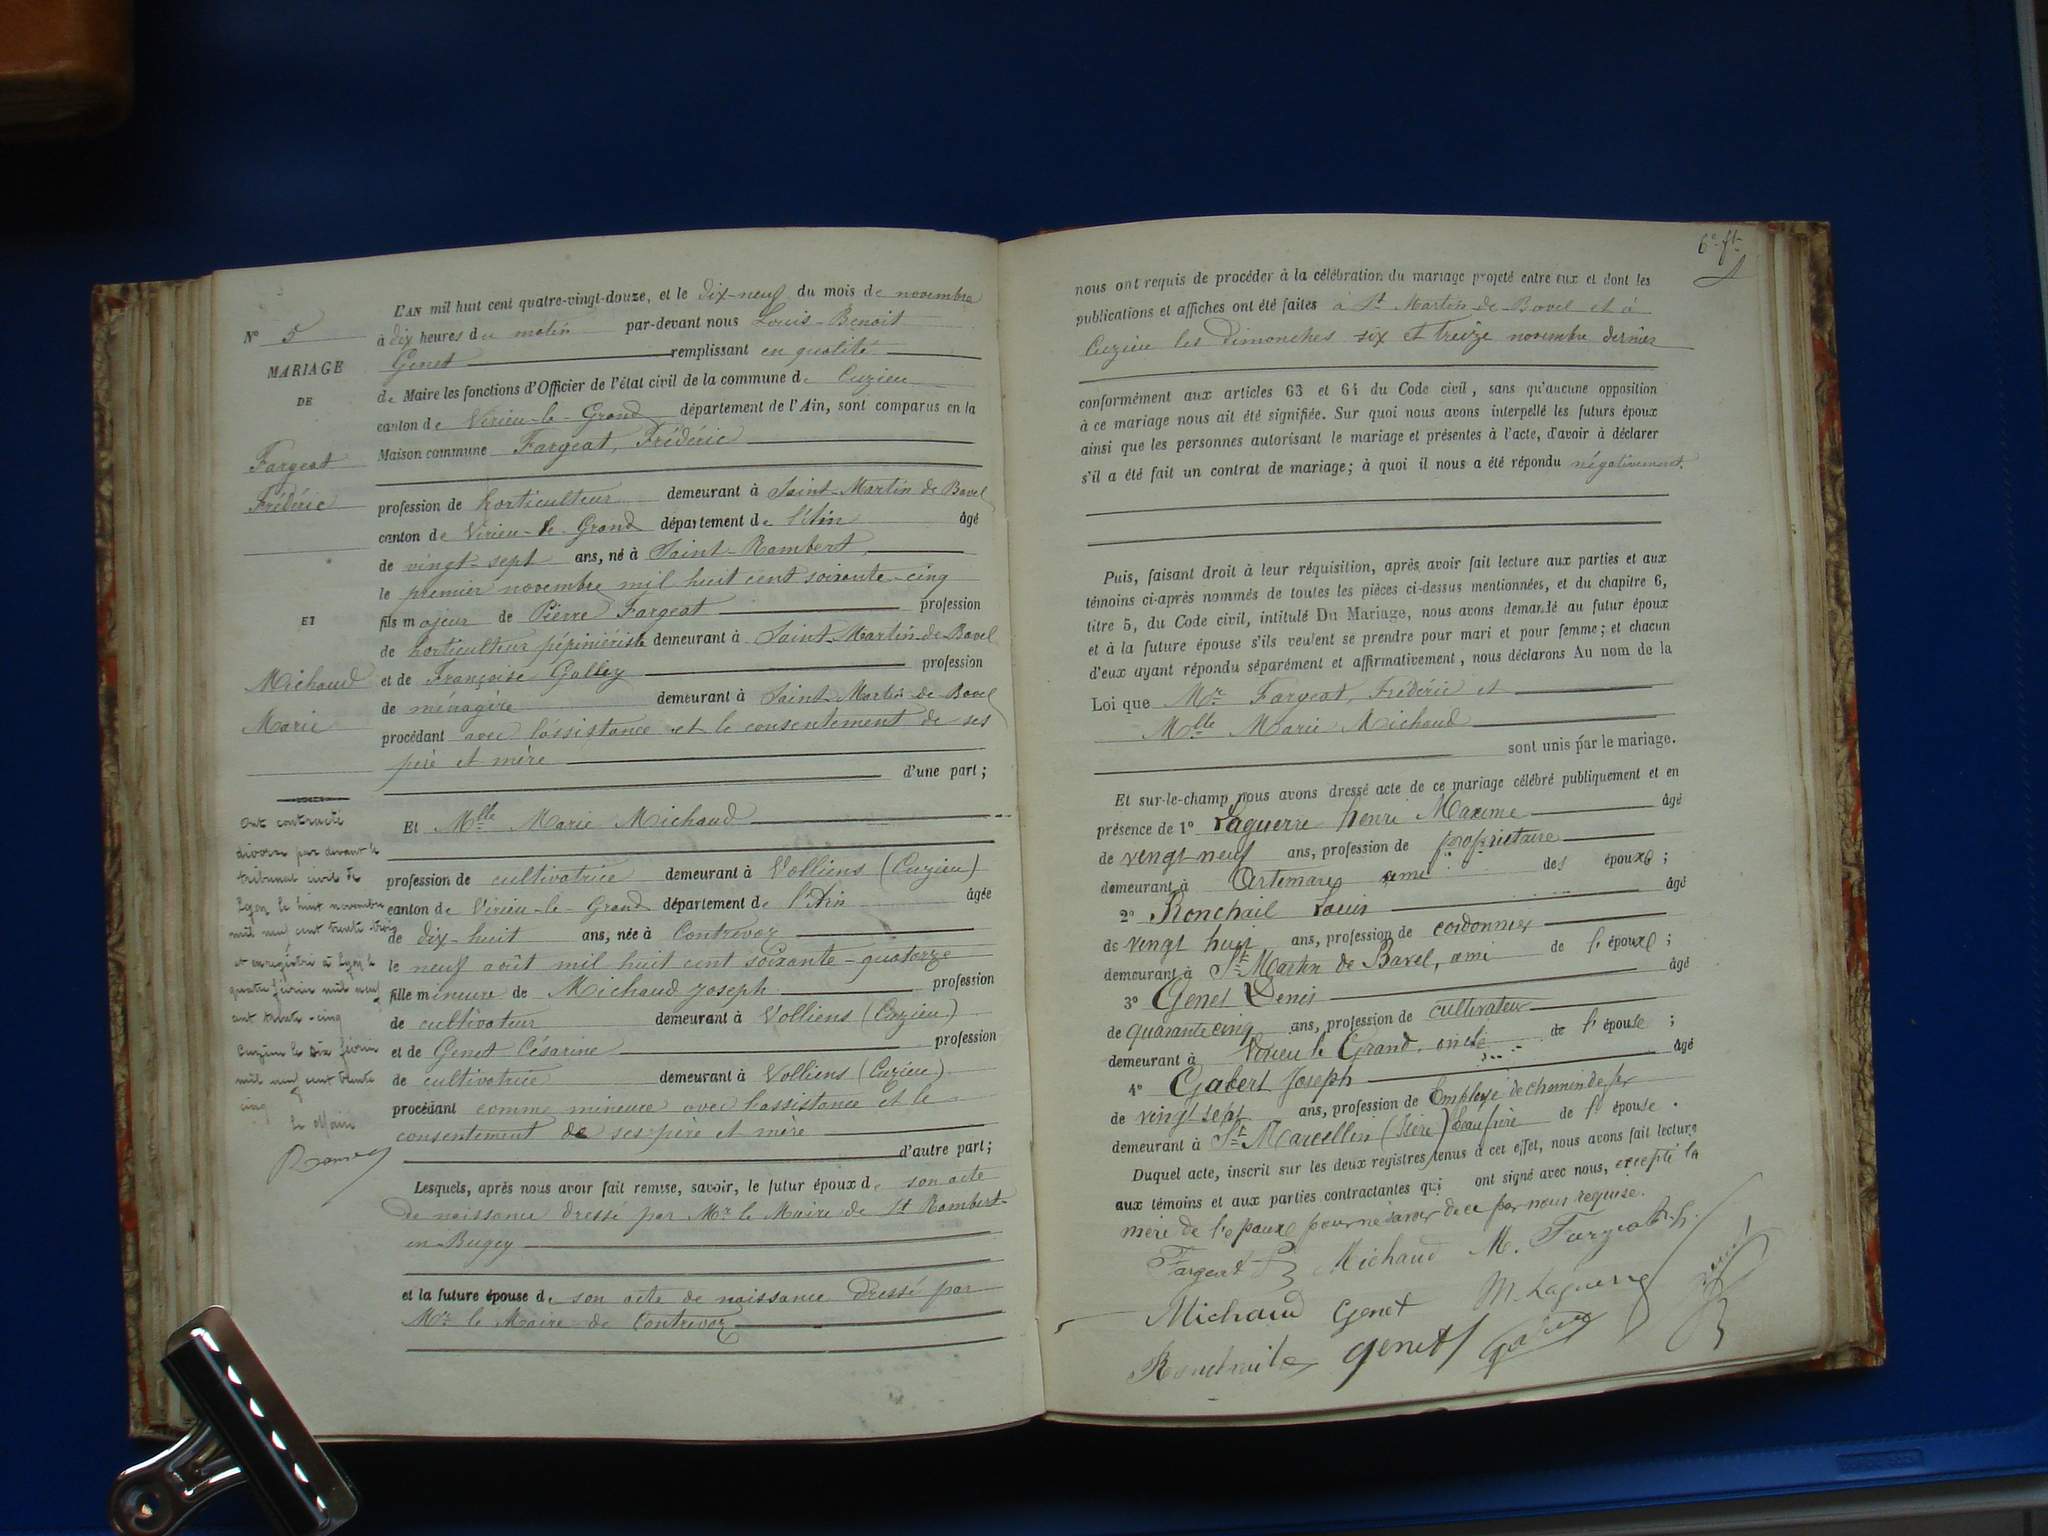 N° 5
MARIAGE
DE
Fargeat
Frédéric
ET
Michaud
Marie
Ont contracté
divorce par devant le
tribunal civil de
Lyon le huit novembre
mil neuf cent trente trois
et enregistré à Lyon le
quatre février mil neuf
cent trente-cinq
Cuzieu le six février
mil neuf cent trente
cinq
Le Maire
L'AN mil huit cent quatre-vingt-douze, et le dix-neuf du mois de novembre
à dix heures du matin par-devant nous Louis-Benoit
Genet remplissant en qualité
de Maire les fonctions d'Officier de l'état civil de la commune de Cuzieu
canton de Virieu-le-Grand département de l'Ain, sont comparus en la
Maison commune Fargeat, Frédéric
profession de horticulteur demeurant à Saint-Martin de Bavel
canton de Virieu-le-Grand département de l'Ain âgé
de vingt-sept ans, né à Saint-Rambert
le premier novembre mil huit cent soixante-cinq
fils majeur de Pierre Fargeat profession
de horticulteur pépiniériste demeurant à Saint-Martin-de-Bavel
et de Françoise Gallay profession
de ménagère demeurant à Saint-Martin-de-Bavel
procédant avec l'assistance et le consentement de ses
père et mère
d'une part;
Et Mlle Marie Michaud
profession de cultivatrice demeurant à Volliens (Cuzieu)
canton de Virieu-le-Grand département de l'Ain âgée
de dix-huit ans, née à Contrevoz
le neuf août mil huit cent soixante-quatorze
fille mineure de Michaud Joseph profession
de cultivateur demeurant à Volliens (Cuzieu)
et de Genet Césarine profession
de cultivatrice demeurant à Volliens (Cuzieu)
procédant comme mineure avec l'assistance et le
consentement de ses père et mère
d'autre part;
Lesquels, après nous avoir fait remise, savoir, le futur époux de son acte
de naissance dressé par Mr le Maire de St Rambert-
en-Bugey
et la future épouse de son acte de naissance dressé par
Mr le Maire de Contrevoz
6e ft
nous ont requis de procéder à la célébration du mariage projeté entre eux et dont les
publications et affiches ont été faites à St Martin-de-Bavel et à
Cuzieu les dimanches six et treize novembre dernier
conformément aux articles 63 et 64 du Code civil, sans qu'aucune opposition
à ce mariage nous ait été signifiée. Sur quoi nous avons interpellé les futurs époux
ainsi que les personnes autorisant le mariage et présentes à l'acte, d'avoir à déclarer
s'il a été fait un contrat de mariage; à quoi il nous a été répondu négativement.
Puis, faisant droit à leur réquisition, après avoir fait lecture aux parties et aux
témoins ci-après nommés de toutes les pièces ci-dessus mentionnées, et du chapitre 6,
titre 5, du Code civil, intitulé Du Mariage, nous avons demandé au futur époux
et à la future épouse s'ils veulent se prendre pour mari et pour femme; et chacun
d'eux ayant répondu séparément et affirmativement, nous déclarons Au nom de la
Loi que Mr Fargeat, Frédéric et
Mlle Marie Michaud
sont unis par le mariage.
Et sur-le-champ nous avons dressé acte de ce mariage célébré publiquement et en
présence de 1° Laguerre henri Maxime âgé
de vengt neuf ans, profession de propriétaire
demeurant à Artemare ami des époux;
2° Ronchail Louis âgé
de vengt huit ans, profession de cordonnier
demeurant à St Martin de Bavel, ami de l'époux;
3° Genet Denis âgé
de quarante cinq ans, profession de cultivateur
demeurant à Virieu le Grand, oncle de l'épouse;
4° Gabert Joseph âgé
de vingt sept ans, profession de Employé de chemin de fer
demeurant à St Marcellin (Isère) beau frère de l'épouse.
Duquel acte, inscrit sur les deux registres tenus à cet effet, nous avons fait lecture
aux témoins et aux parties contractantes qui ont signé avec nous, excepté la
mère de l'époux pour ne savoir de ce par nous requise.
Fargeat Michaud M. Fargeat
Michaud Genet M. Laguerre
Ronchail Genet